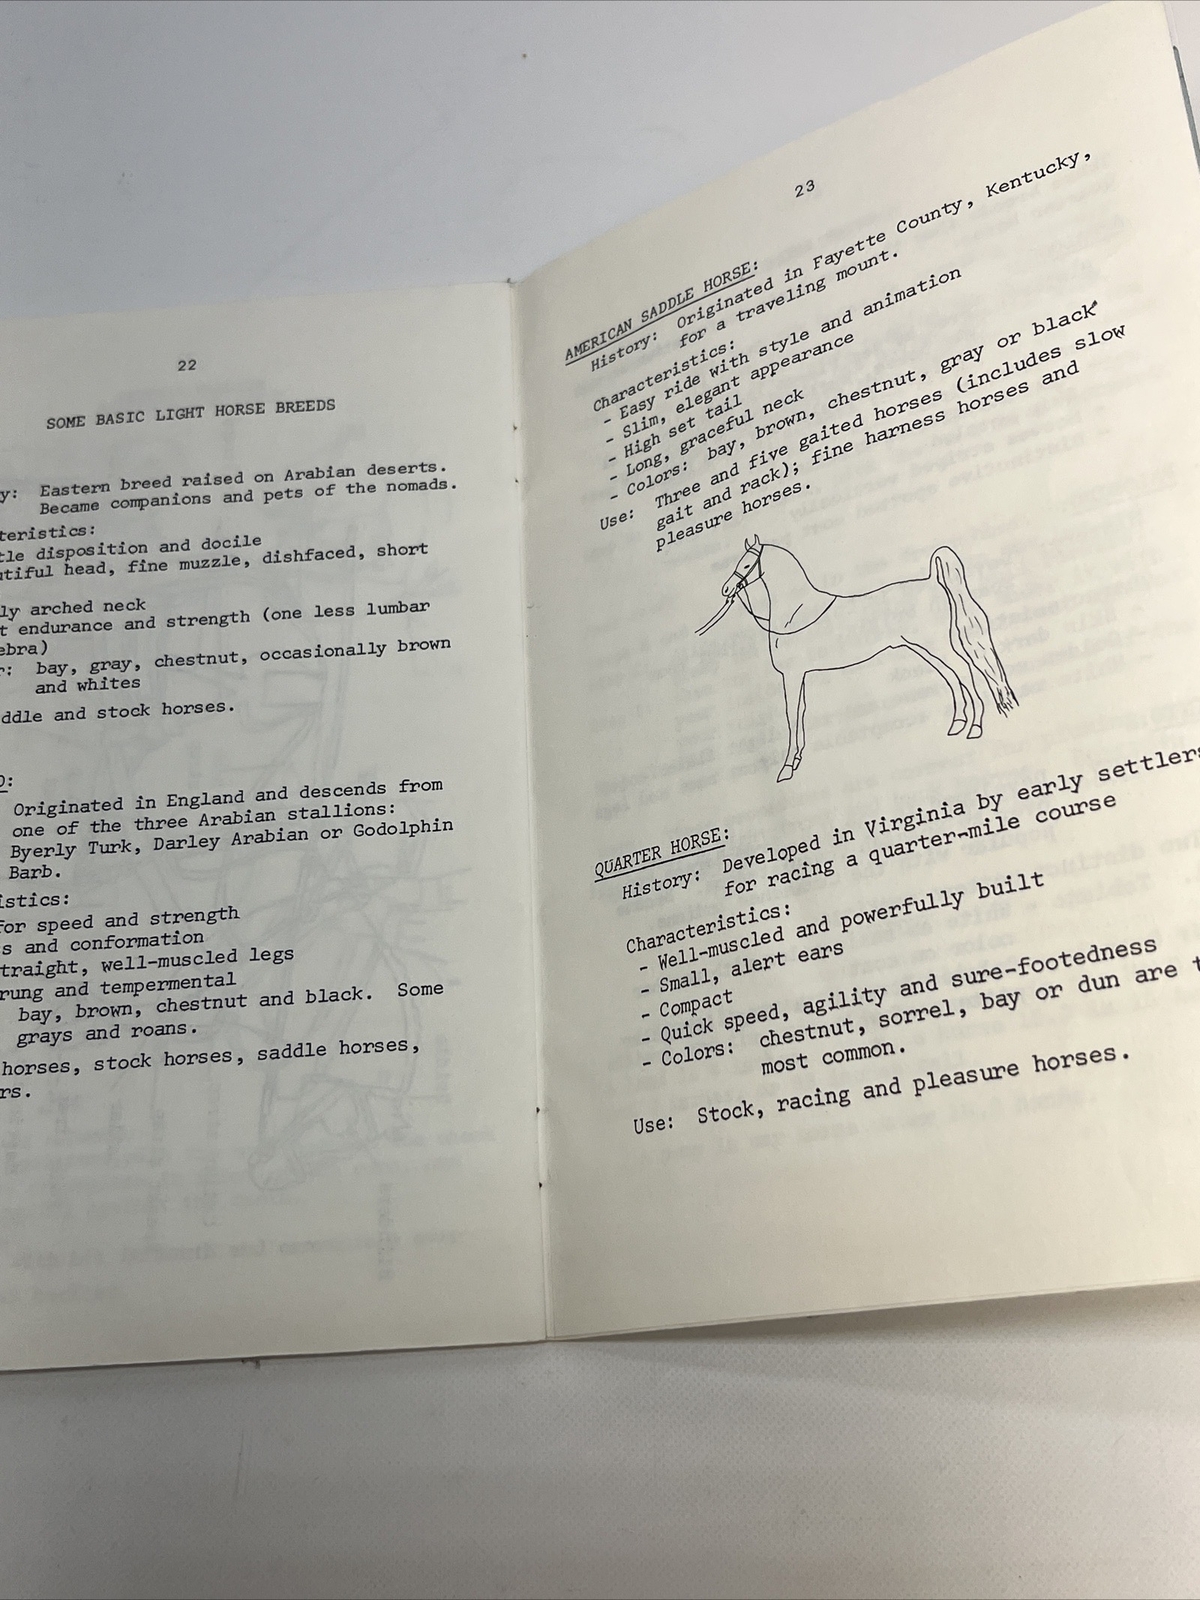 22
SOME BASIC LIGHT HORSE BREEDS
Eastern breed raised on Arabian deserts.
Became companions and pets of the nomads.
disposition and docile
head, fine muzzle, dishfaced, short
arched neck
endurance and strength (one less lumbar
bay, gray, chestnut, occasionally brown
and whites
and stock horses.
Originated in England and descends from
one of the three Arabian stallions:
Byerly Turk, Darley Arabian or Godolphin
Barb.
for speed and strength
and conformation
well-muscled legs
and tempermental
bay, brown, chestnut and black. Some
grays and roans.
horses, stock horses, saddle horses,
23
AMERICAN SADDLE HORSE:
History: Originated in Fayette County, Kentucky,
for a traveling mount.
Characteristics:
- Easy ride with style and animation
- Slim, elegant appearance
- High set tail
- Long, graceful neck
- Colors: bay, brown, chestnut, gray or black
Use: Three and five gaited horses (includes slow
gait and rack); fine harness horses and
pleasure horses.
QUARTER HORSE:
History: Developed in Virginia by early settlers
for racing a quarter-mile course
Characteristics:
- Well-muscled and powerfully built
- Small, alert ears
- Compact
- Quick speed, agility and sure-footedness
- Colors: chestnut, sorrel, bay or dun are
most common.
Use: Stock, racing and pleasure horses.